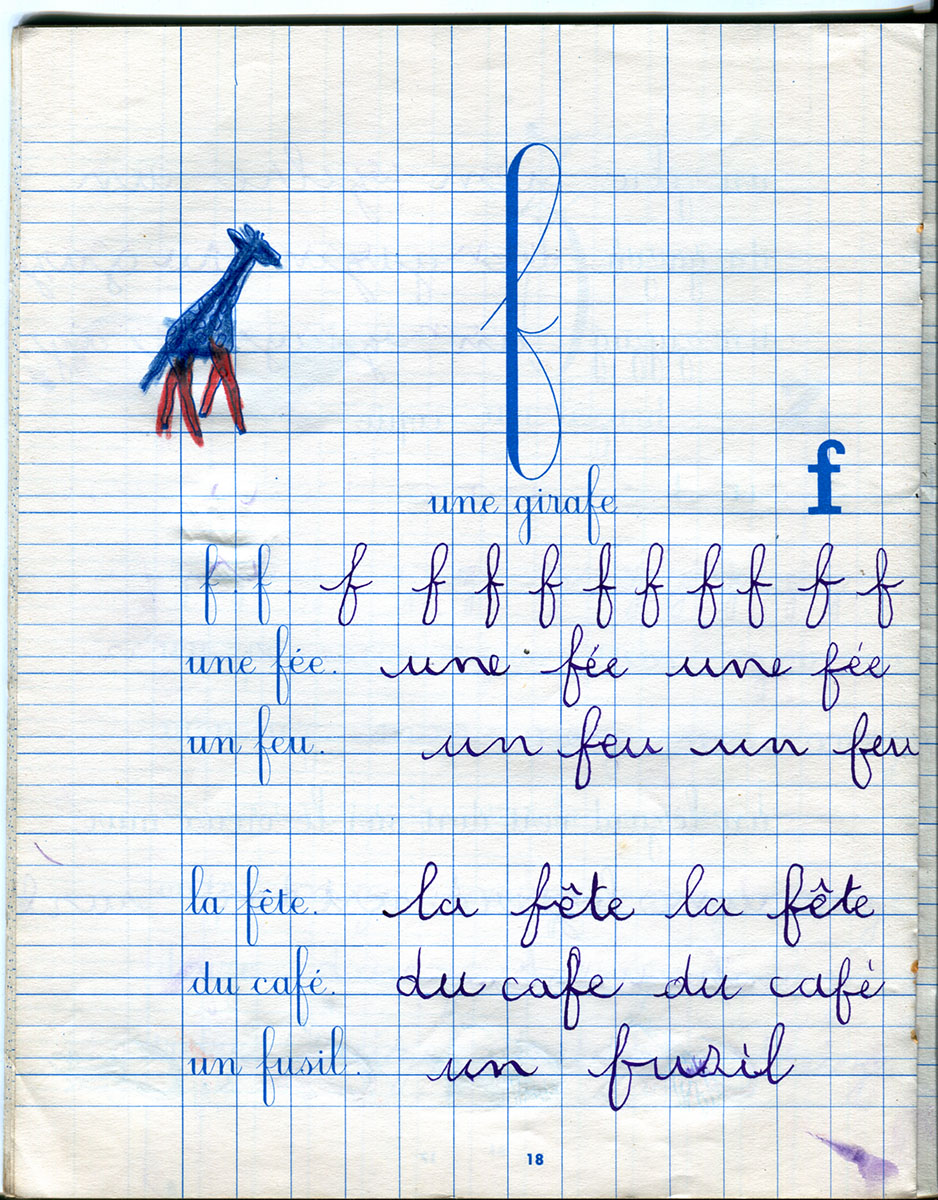 f
une girafe f
f f f f f f f f f f f f
une fée. une fée une fée
un feu. un feu un feu
la fête. la fête la fête
du café. du cafe du café
un fusil. un fusil
18